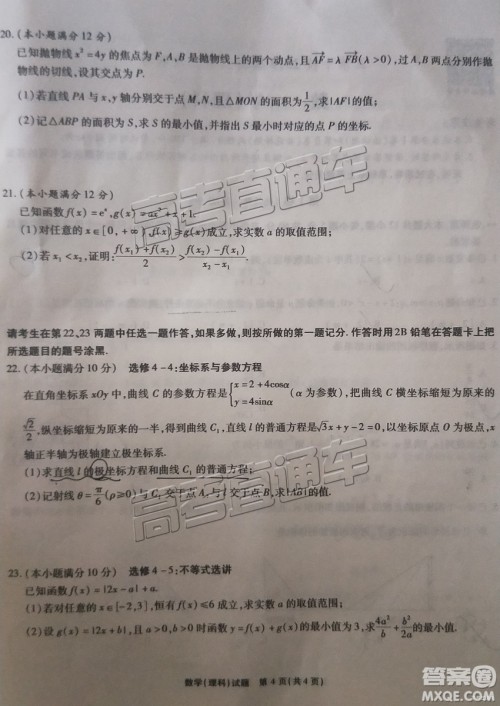 20.(本小题满分12分)
已知抛物线x²=4y的焦点为F,A,B是抛物线上的两个动点,且AF=λFB(λ>0),过A,B两点分别作抛
物线的切线,设其交点为P.
(1)若直线PA与x,y轴分别交于点M,N,且△MON的面积为1/2,求|AF|的值;
(2)记△ABP的面积为S,求S的最小值,并指出S最小时对应的点P的坐标.
21.(本小题满分12分)
已知函数f(x)=eˣ,g(x)=ax²+x+1.
(1)对任意的x∈[0,+∞),f(x)≥g(x)成立,求实数a的取值范围;
(2)若x₁<x₂,证明:(f(x₁)+f(x₂))/2>(f(x₂)-f(x₁))/(x₂-x₁).
请考生在第22、23两题中任选一题作答,如果多做,则按所做的第一题记分.作答时用2B铅笔在答题卡上把
所选题目的题号涂黑.
22.(本小题满分10分) 选修4-4:坐标系与参数方程
在直角坐标系xOy中,曲线C的参数方程是{x=2+4cosα y=4sinα (α为参数),把曲线C横坐标缩短为原来的
√2/2,纵坐标缩短为原来的一半,得到曲线C₁,直线l的普通方程是√3x+y-2=0,以坐标原点O为极点,x
轴正半轴为极轴建立极坐标系.
(1)求直线l的极坐标方程和曲线C₁的普通方程;
(2)记射线θ=π/6(ρ≥0)与C₁交于点A,与l交于点B,求|AB|的值.
23.(本小题满分10分) 选修4-5:不等式选讲
已知函数f(x)=|2x-a|+a.
(1)若对任意的x∈[-2,3],恒有f(x)≤6成立,求实数a的取值范围;
(2)设g(x)=|2x+b|,且a>0,b>0时函数y=f(x)+g(x)的最小值为3,求4a²/b+b²/2a的最小值.
数学(理科)试题 第4页(共4页)
高考直通车
高考直通车
答案圈
MXQE.COM